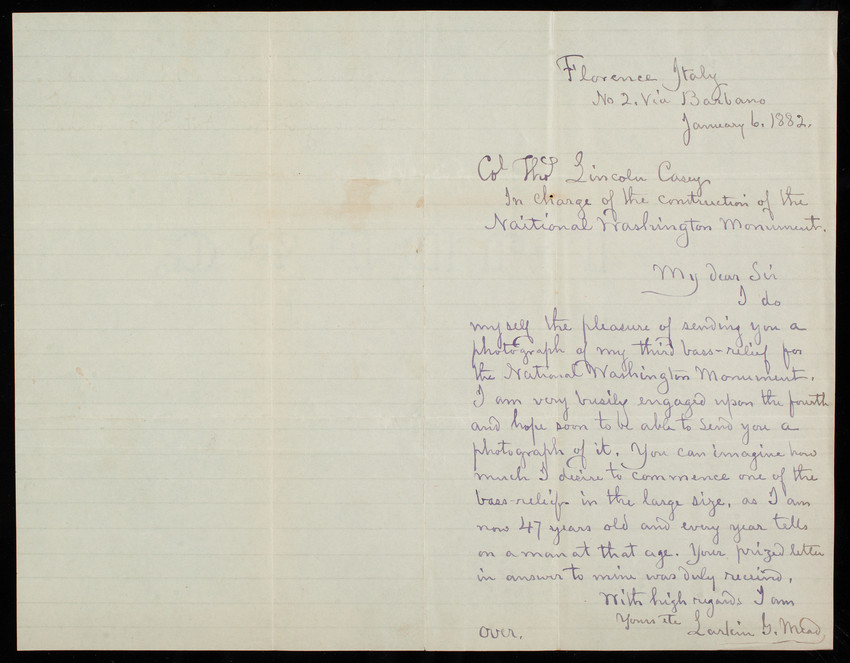 Florence Italy
No 2. Via Barbano
January 6. 1882.
Col Thos Lincoln Casey
In charge of the construction of the
Naitional Washington Monument.
My dear Sir
I do
myself the pleasure of sending you a
photograph of my third bass-relief for
the National Washington Monument.
I am very busily engaged upon the fourth
and hope soon to be able to send you a
photograph of it. You can imagine how
much I desire to commence one of the
bass-reliefs in the large size, as I am
now 47 years old and every year tells
on a man at that age. Your prized letter
in answer to mine was duly received.
With high regards I am
Yours etc Larkin G. Mead
over.